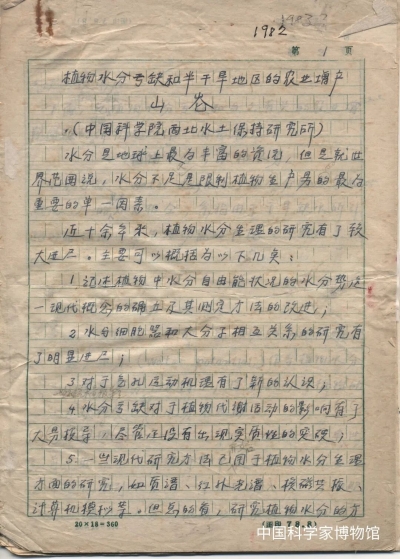 1982
第 1 页
植物水分亏缺和半干旱地区的农业增产
山 仑
(中国科学院西北水土保持研究所)
水分是地球上最为丰富的资源，但是就世
界范围说，水分不足是限制植物生产力的最为
重要的单一因素。
近十余年来，植物水分生理的研究有了较
大进展。主要可以概括为以下几类：
1 论述植物中水分自由能状况的水分势这
一现代概念的确立及其测定方法的改进；
2 水与细胞器和大分子相互关系的研究有
了明显进展；
3 对于气孔运动机理有了新的认识；
4 水分亏缺对于植物代谢活动的影响有了
大量报导，尽管还没有出现实质性的突破；
5 一些现代研究方法已用于植物水分生理
方面的研究，如质谱、红外光谱、核磁共振、
计算机模拟等。但总的看，研究植物水分的方
20×18=360
中国科学家博物馆